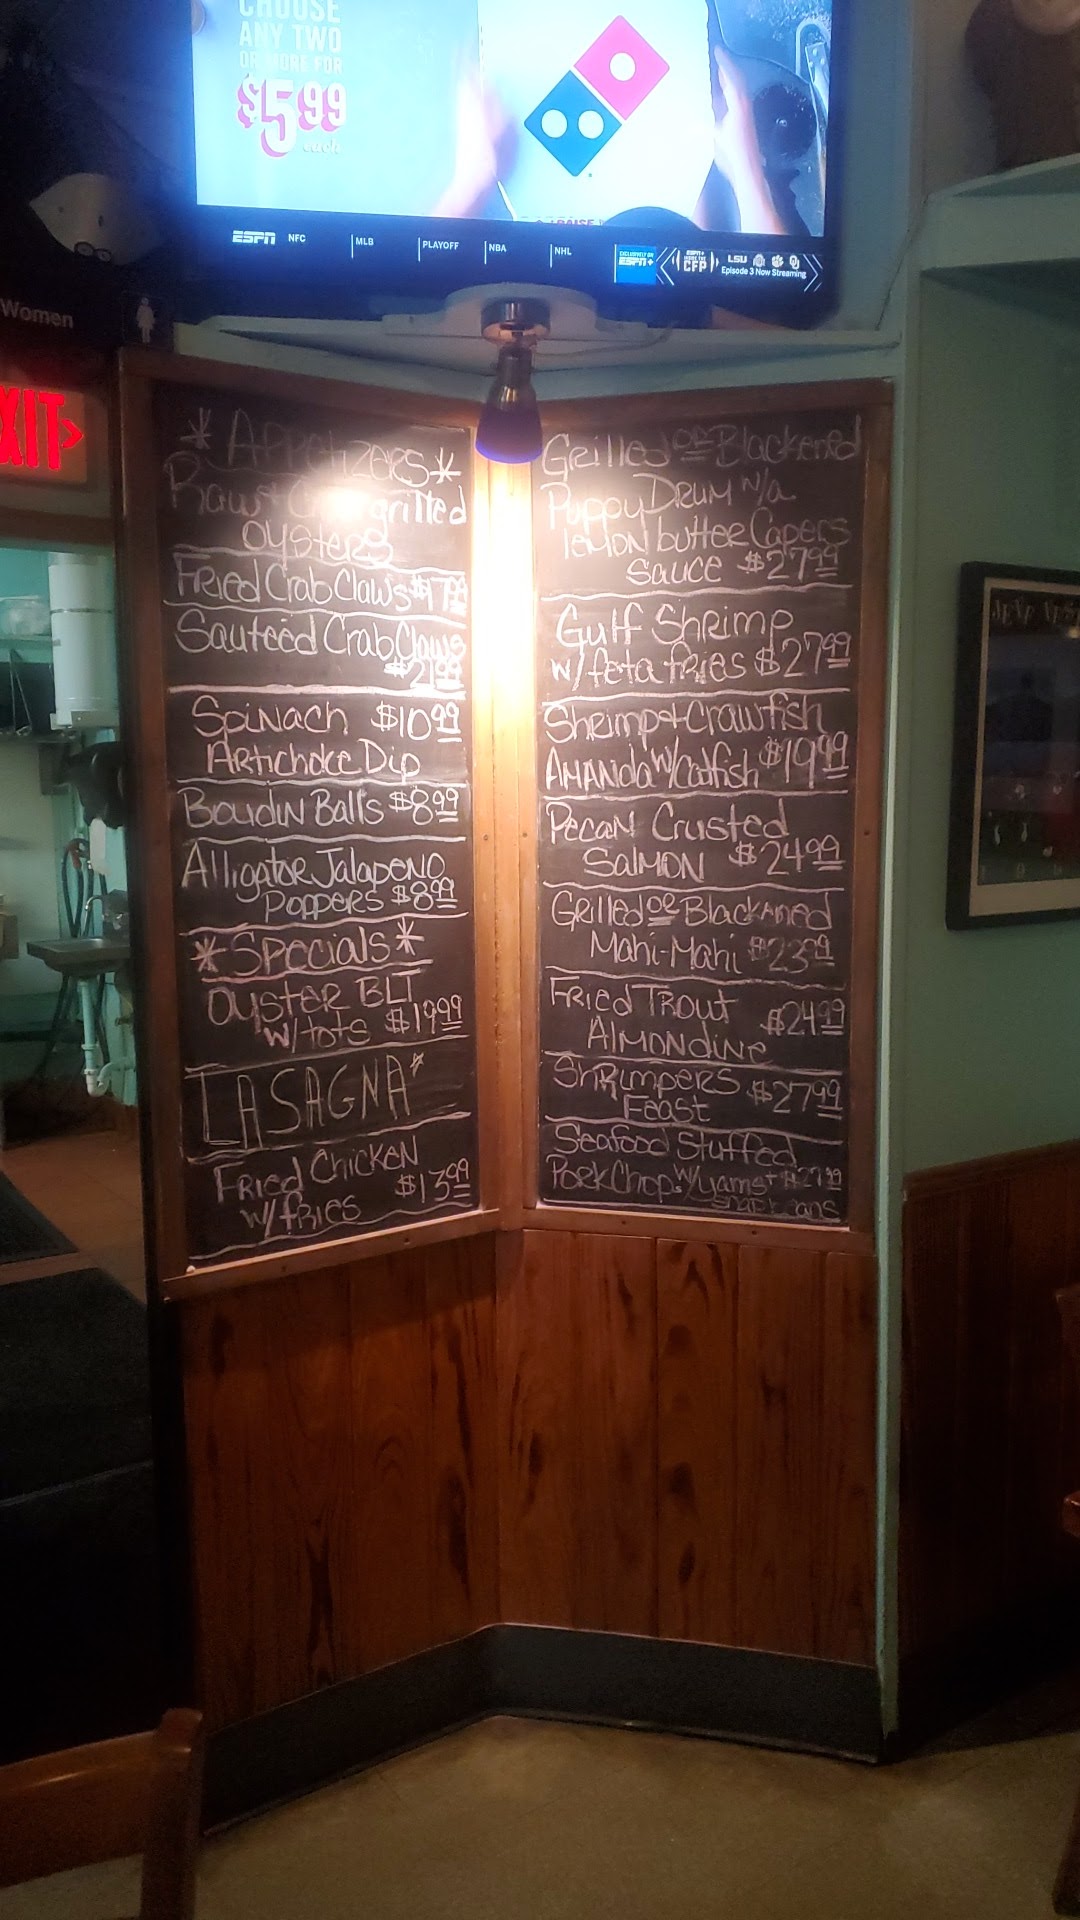 CHOOSE
ANY TWO
OR MORE FOR
$5.99
each
ESPN NFC MLB PLAYOFF NBA NHL
EXCLUSIVELY ON
ESPN+
CFP
LSU
Episode 3 Now Streaming
Women
EXIT
* Appetizers *
Raw + Chargrilled
Oysters
Fried Crab Claws $17.99
Sauteed Crab Claws
$21.99
Spinach $10.99
Artichoke Dip
Boudin Balls $8.99
Alligator Jalapeno
Poppers $8.99
*Specials*
Oyster BLT
w/tots $19.99
LASAGNA*
Fried Chicken
w/fries $13.99
Grilled or Blackened
Puppy Drum w/a
lemon butter Capers
Sauce $27.99
Gulf Shrimp
w/ feta fries $27.99
Shrimp + Crawfish
Amanda w/Catfish $19.99
Pecan Crusted
Salmon $24.99
Grilled or Blackened
Mahi-Mahi $23.99
Fried Trout
Almondine $24.99
Shrimpers
Feast $27.99
Seafood Stuffed
Pork Chop w/yams + $27.99
snap beans